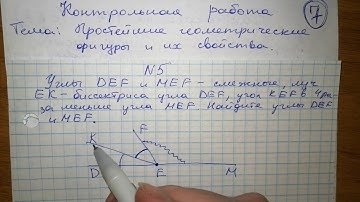 Контрольная работа
7
Тема: Простейшие геометрические
фигуры и их свойства.
N5
Углы DEF и MEF - смежные, луч
EK - биссектриса угла DEF, угол KEF в 4 ра-
за меньше угла MEF. Найдите углы DEF
и MEF.
F
K
D
E
M